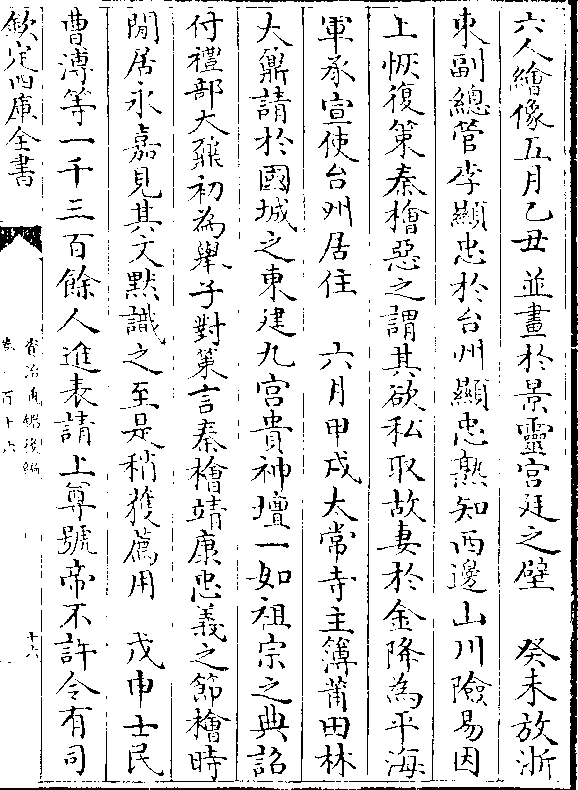 六人繪像五月乙丑並畫於景靈宮廷之壁　癸未放浙
東副總管李顯忠於台州顯忠熟知西邊山川險易因
上恢復策秦檜惡之謂其欲私取故妻於金降為平海
軍承宣使台州居住　六月甲戌太常寺主簿莆田林
大鼐請於國城之東建九宮貴神壇一如祖宗之典詔
付禮部大鼐初為舉子對策言秦檜靖康忠義之節檜時
閒居永嘉見其文黙識之至是稍獲薦用　戊申士民
曹溥等一千三百餘人進表請上尊號帝不許令有司
欽定四庫全書
資治通鑑後編
卷一百十六
十六